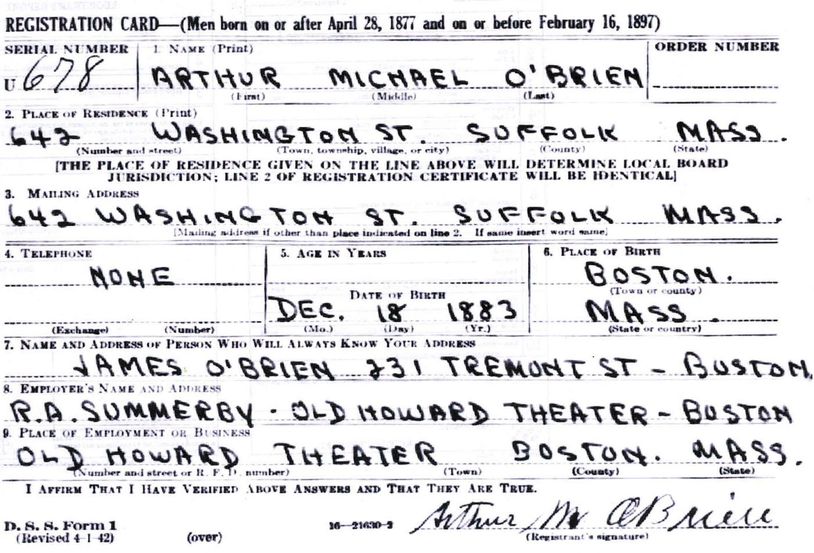 REGISTRATION CARD—(Men born on or after April 28, 1877 and on or before February 16, 1897)
SERIAL NUMBER 1. NAME (Print) ORDER NUMBER
U 678 ARTHUR MICHAEL O'BRIEN
(First) (Middle) (Last)
2. PLACE OF RESIDENCE (Print)
642 WASHINGTON ST. SUFFOLK MASS.
(Number and street) (Town, township, village, or city) (County) (State)
[THE PLACE OF RESIDENCE GIVEN ON THE LINE ABOVE WILL DETERMINE LOCAL BOARD
JURISDICTION; LINE 2 OF REGISTRATION CERTIFICATE WILL BE IDENTICAL]
3. MAILING ADDRESS
642 WASHINGTON ST. SUFFOLK MASS.
[Mailing address if other than place indicated on line 2. If same insert word same]
4. TELEPHONE 5. AGE IN YEARS 6. PLACE OF BIRTH
NONE BOSTON.
(Town or county)
DATE OF BIRTH
DEC. 18 1883 MASS.
(Exchange) (Number) (Mo.) (Day) (Yr.) (State or country)
7. NAME AND ADDRESS OF PERSON WHO WILL ALWAYS KNOW YOUR ADDRESS
JAMES O'BRIEN 231 TREMONT ST - BUSTON.
8. EMPLOYER'S NAME AND ADDRESS
R.A. SUMMERBY - OLD HOWARD THEATER - BUSTON
9. PLACE OF EMPLOYMENT OR BUSINESS
OLD HOWARD THEATER BOSTON. MASS.
(Number and street or R. F. D. number) (Town) (County) (State)
I AFFIRM THAT I HAVE VERIFIED ABOVE ANSWERS AND THAT THEY ARE TRUE.
D. S. S. Form 1
(Revised 4-1-42) (over) 16—21630-2 Arthur M O'Brien
(Registrant's signature)